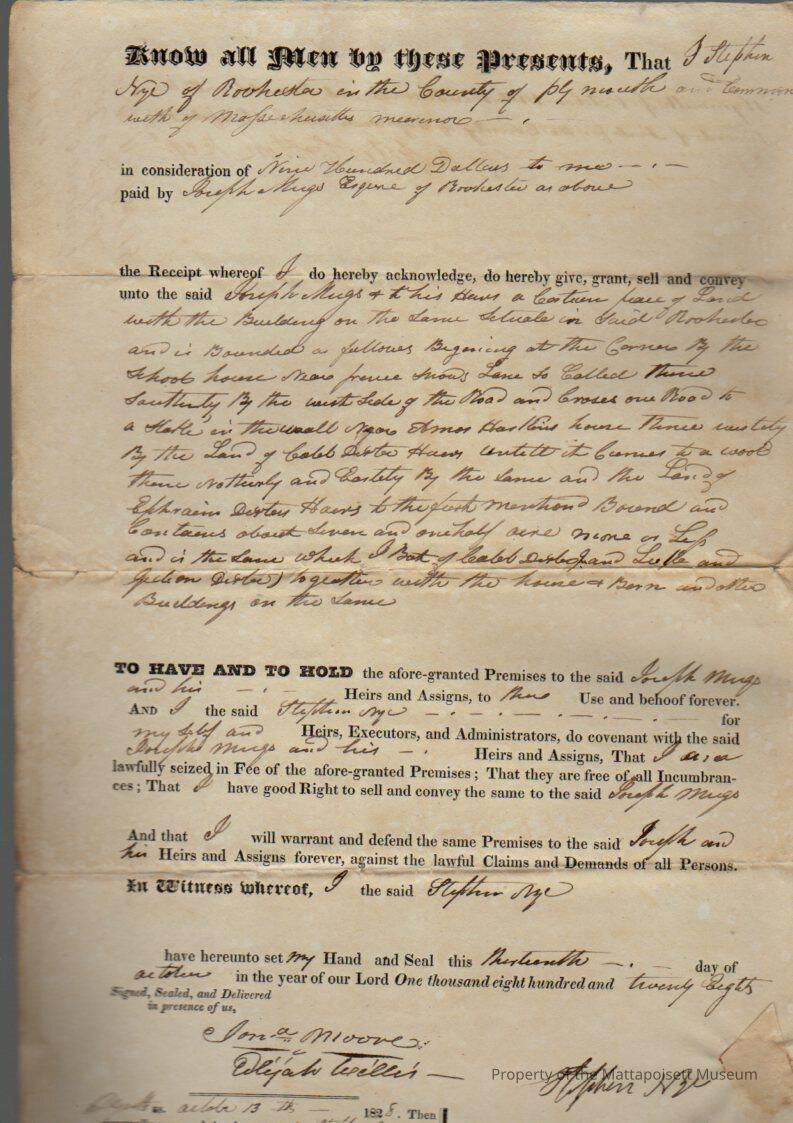 Know all Men by these Presents, That I Stephen
Nye of Rochester in the County of plymouth and Common
with of Massachusetts
in consideration of Nine Hundred Dollars to me
paid by Joseph Meigs Esquire of Rochester as above
the Receipt whereof I do hereby acknowledge, do hereby give, grant, sell and convey
unto the said Joseph Meigs & to his Heirs a Certain peace of Land
with the Building on the Same Situate in Said Rochester
and is Bounded as follows Begining at the Corner By the
School house Near prince Snows Lane So Called thence
Southerly By the west Side of the Road and Croses one Road to
a Stake in the wall Near Amos Haskins house thence westerly
By the Land of Caleb Dexter Heirs untill it Comes to a wood
thence Notherly and Easterly By the Same and the Land of
Ephraim Dexters Heirs to the first mentiond Bound and
Contains about Seven and one half acre more or Less
and is the Same which I Bot of Caleb Dexter and and
Dexter) together with the house & Barn and other
Buildings on the Same
TO HAVE AND TO HOLD the afore-granted Premises to the said Joseph Meigs
and his Heirs and Assigns, to there Use and behoof forever.
AND I the said Stephen Nye for
my Self and Heirs, Executors, and Administrators, do covenant with the said
Joseph Meigs and his Heirs and Assigns, That I am
lawfully seized in Fee of the afore-granted Premises; That they are free of all Incumbran-
ces; That I have good Right to sell and convey the same to the said Joseph Meigs
And that I will warrant and defend the same Premises to the said Joseph and
his Heirs and Assigns forever, against the lawful Claims and Demands of all Persons.
In Witness whereof, I the said Stephen Nye
have hereunto set my Hand and Seal this thirteenth day of
october in the year of our Lord One thousand eight hundred and twenty Eight
Signed, Sealed, and Delivered
in presence of us,
Jona Moore
Elijah Willis
Property of the Mattapoisett Museum
Stephen Nye
ss. october 13th 1828. Then